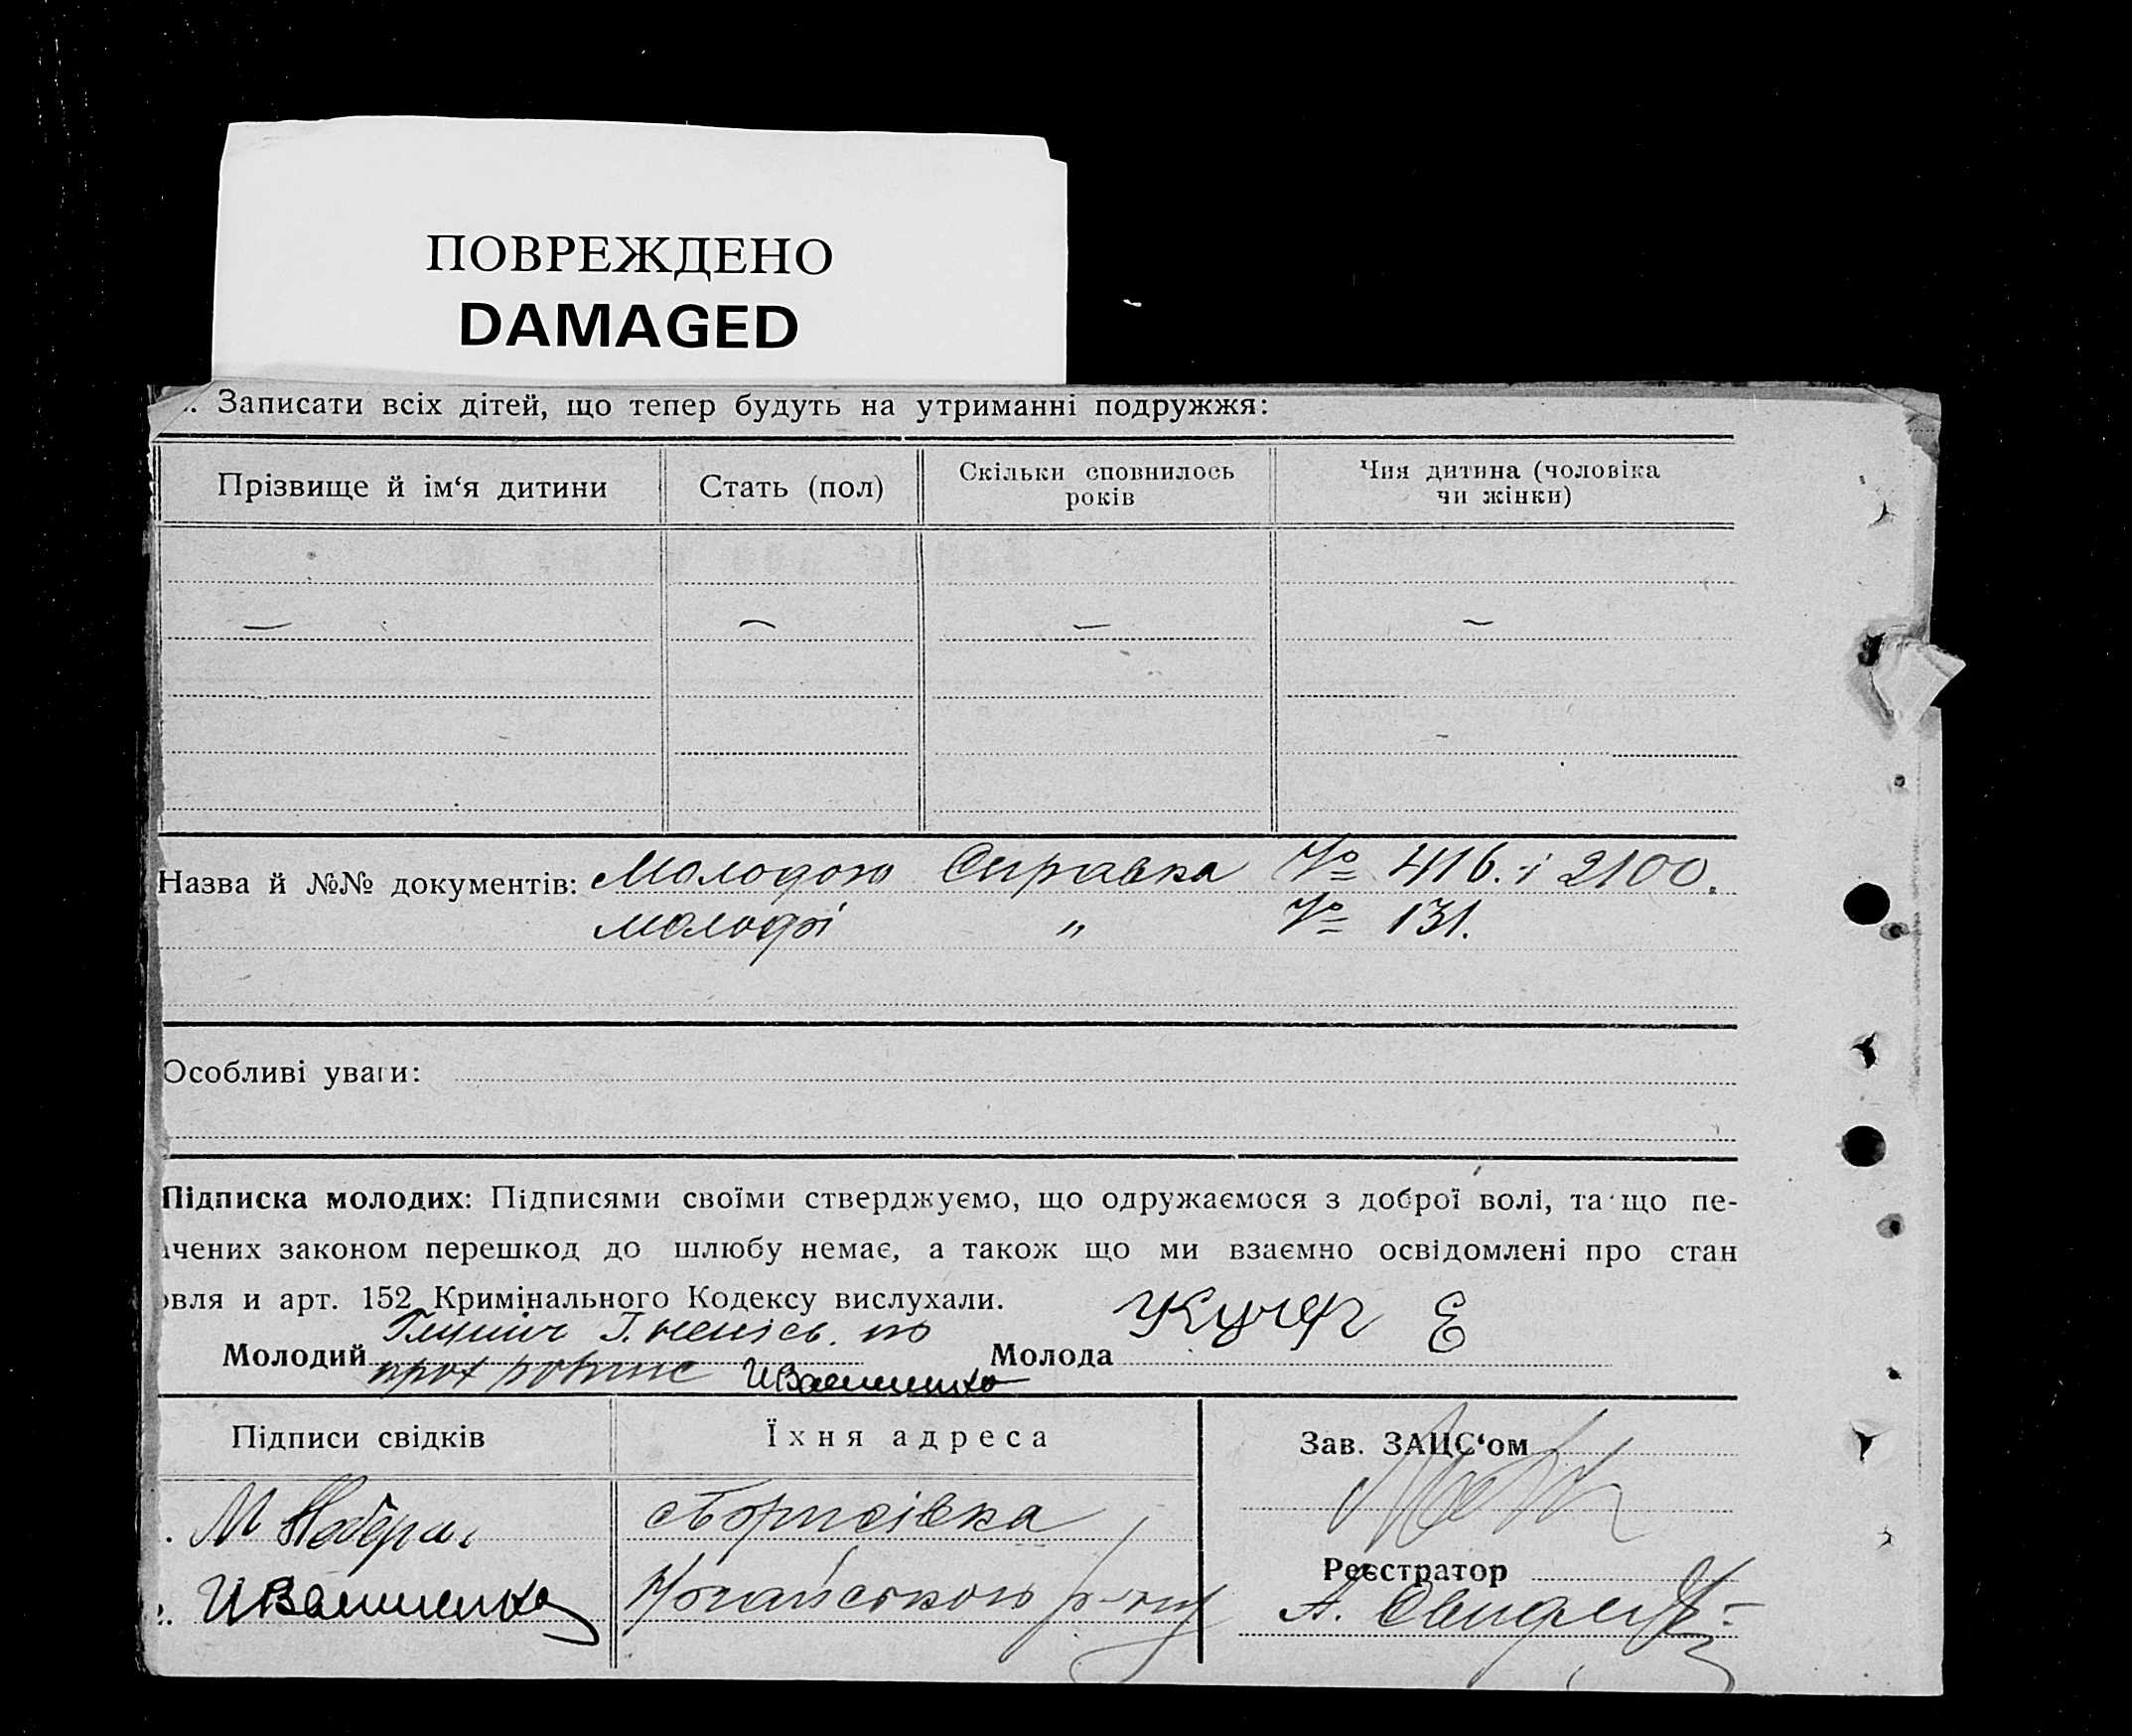 ПОВРЕЖДЕНО
DAMAGED
Записати всіх дітей, що тепер будуть на утриманні подружжя:
Прізвище й ім‘я дитини
Стать (пол)
Скільки сповнилось
років
Чия дитина (чоловіка
чи жінки)
Назва й №№ документів: Молодого Справка № 416. і 2100.
молодої " № 131.
Особливі уваги:
Підписка молодих: Підписями своїми стверджуємо, що одружаємося з доброї волі, та що пе-
ачених законом перешкод до шлюбу немає, а також що ми взаємно освідомлені про стан
овля и арт. 152 Кримінального Кодексу вислухали.
Молодий
Молода Кучер Е
Иващенко
Підписи свідків
Їхня адреса
Зав. ЗАЦС‘ом
М
с Борисівка
Реєстратор
Иващенко
Ногайського р-ну
А.